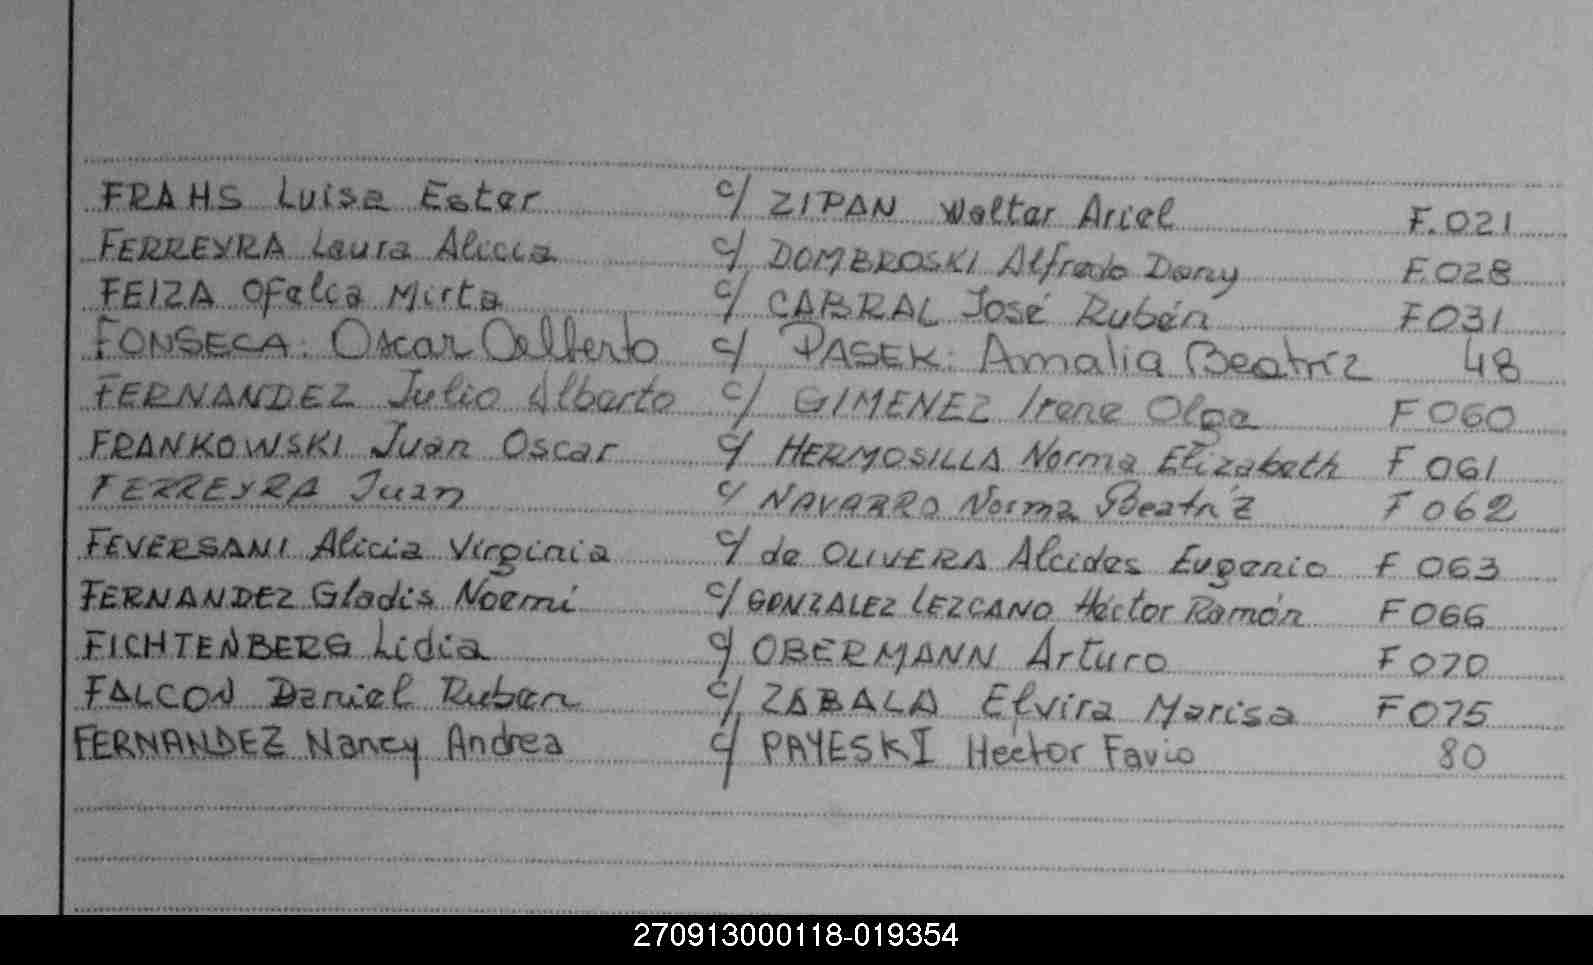 FRAHS Luisa Ester c/ ZIPAN Walter Ariel F.021
FERREYRA Laura Alicia c/ DOMBROSKI Alfredo Dany F.028
FEIZA Ofelia Mirta c/ CABRAL José Rubén F031
FONSECA: Oscar Alberto c/ PASEK: Amalia Beatríz 48
FERNANDEZ Julio Alberto c/ GIMENEZ Irene Olga F060
FRANKOWSKI Juan Oscar c/ HERMOSILLA Norma Elizabeth F 061
FERREYRA Juan c/ NAVARRO Norma Beatríz F 062
FEVERSANI Alicia Virginia c/ de OLIVERA Alcides Eugenio F 063
FERNANDEZ Gladis Noemí c/ GONZALEZ LEZCANO Héctor Ramón F066
FICHTENBERG Lidia c/ OBERMANN Arturo F 070
FALCON Daniel Ruben c/ ZABALA Elvira Marisa F075
FERNANDEZ Nancy Andrea c/ PAYESKI Hector Favio 80
270913000118-019354